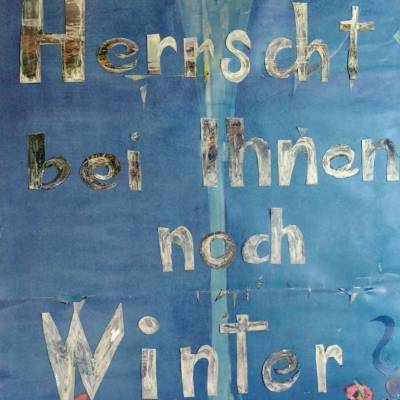 Herrscht
bei Ihnen
noch
Winter?